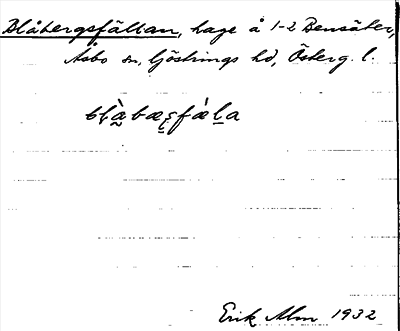 Blåbergsfällan, hage å 1-2 Bensäter,
Åsbo sn, Göstrings hd, Österg. l.
Erik Alm 1932